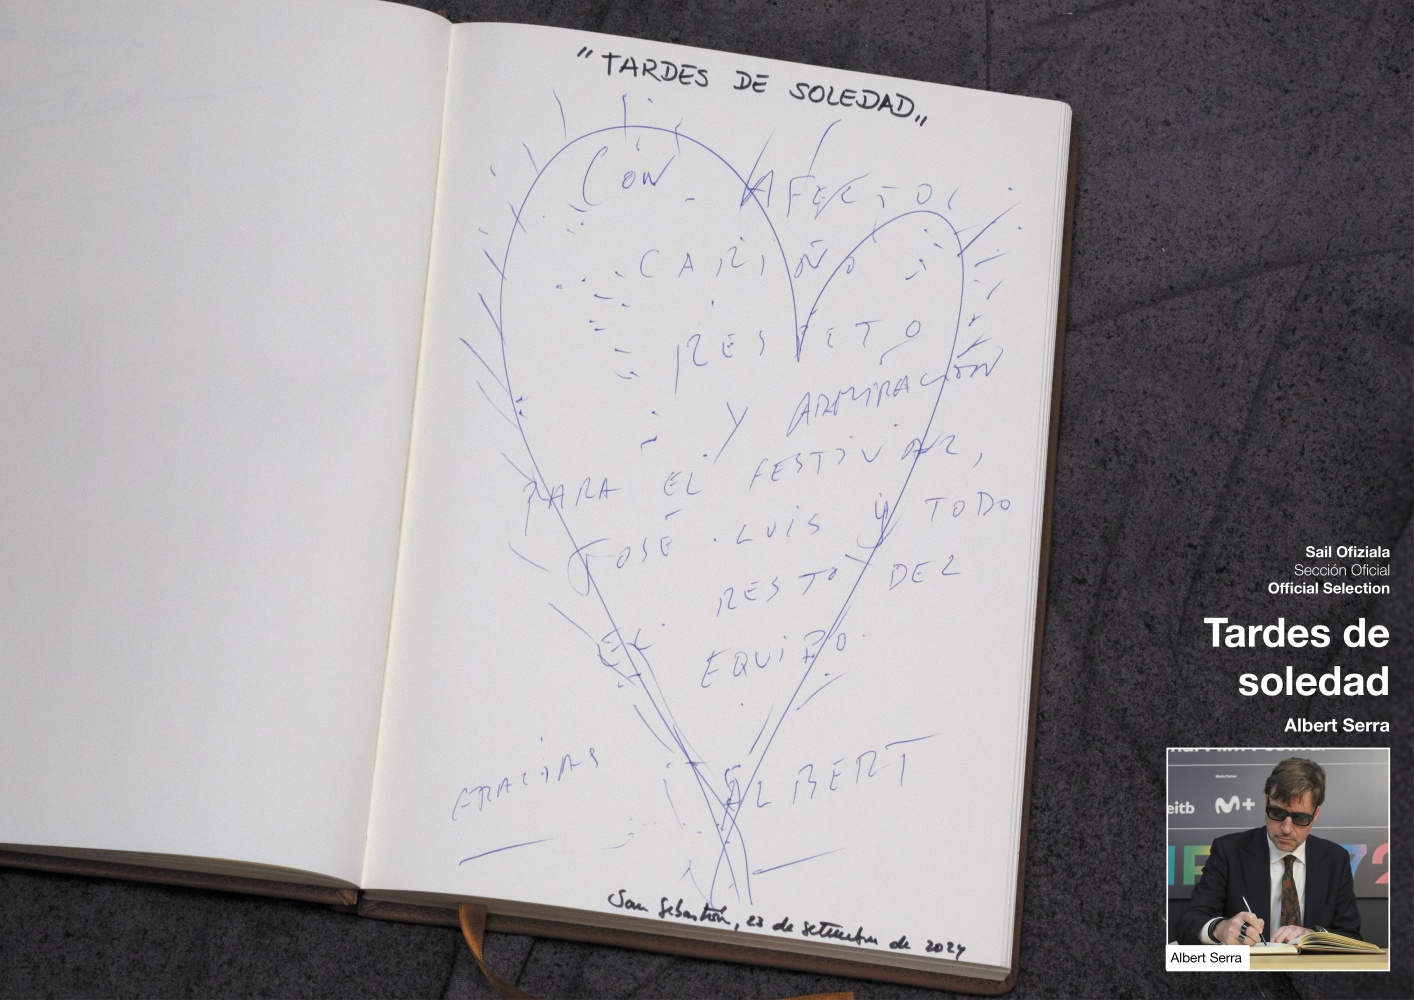 "TARDES DE SOLEDAD"
CON AFECTO,
CARIÑO
RESPETO
Y ADMIRACIÓN
PARA EL FESTIVAL,
JOSÉ LUIS Y TODO
EL RESTO DEL
EQUIPO.
GRACIAS
ALBERT
San Sebastián, 23 de setiembre de 2024
Sail Ofiziala
Sección Oficial
Official Selection
Tardes de
soledad
Albert Serra
eitb
M+
72
Albert Serra